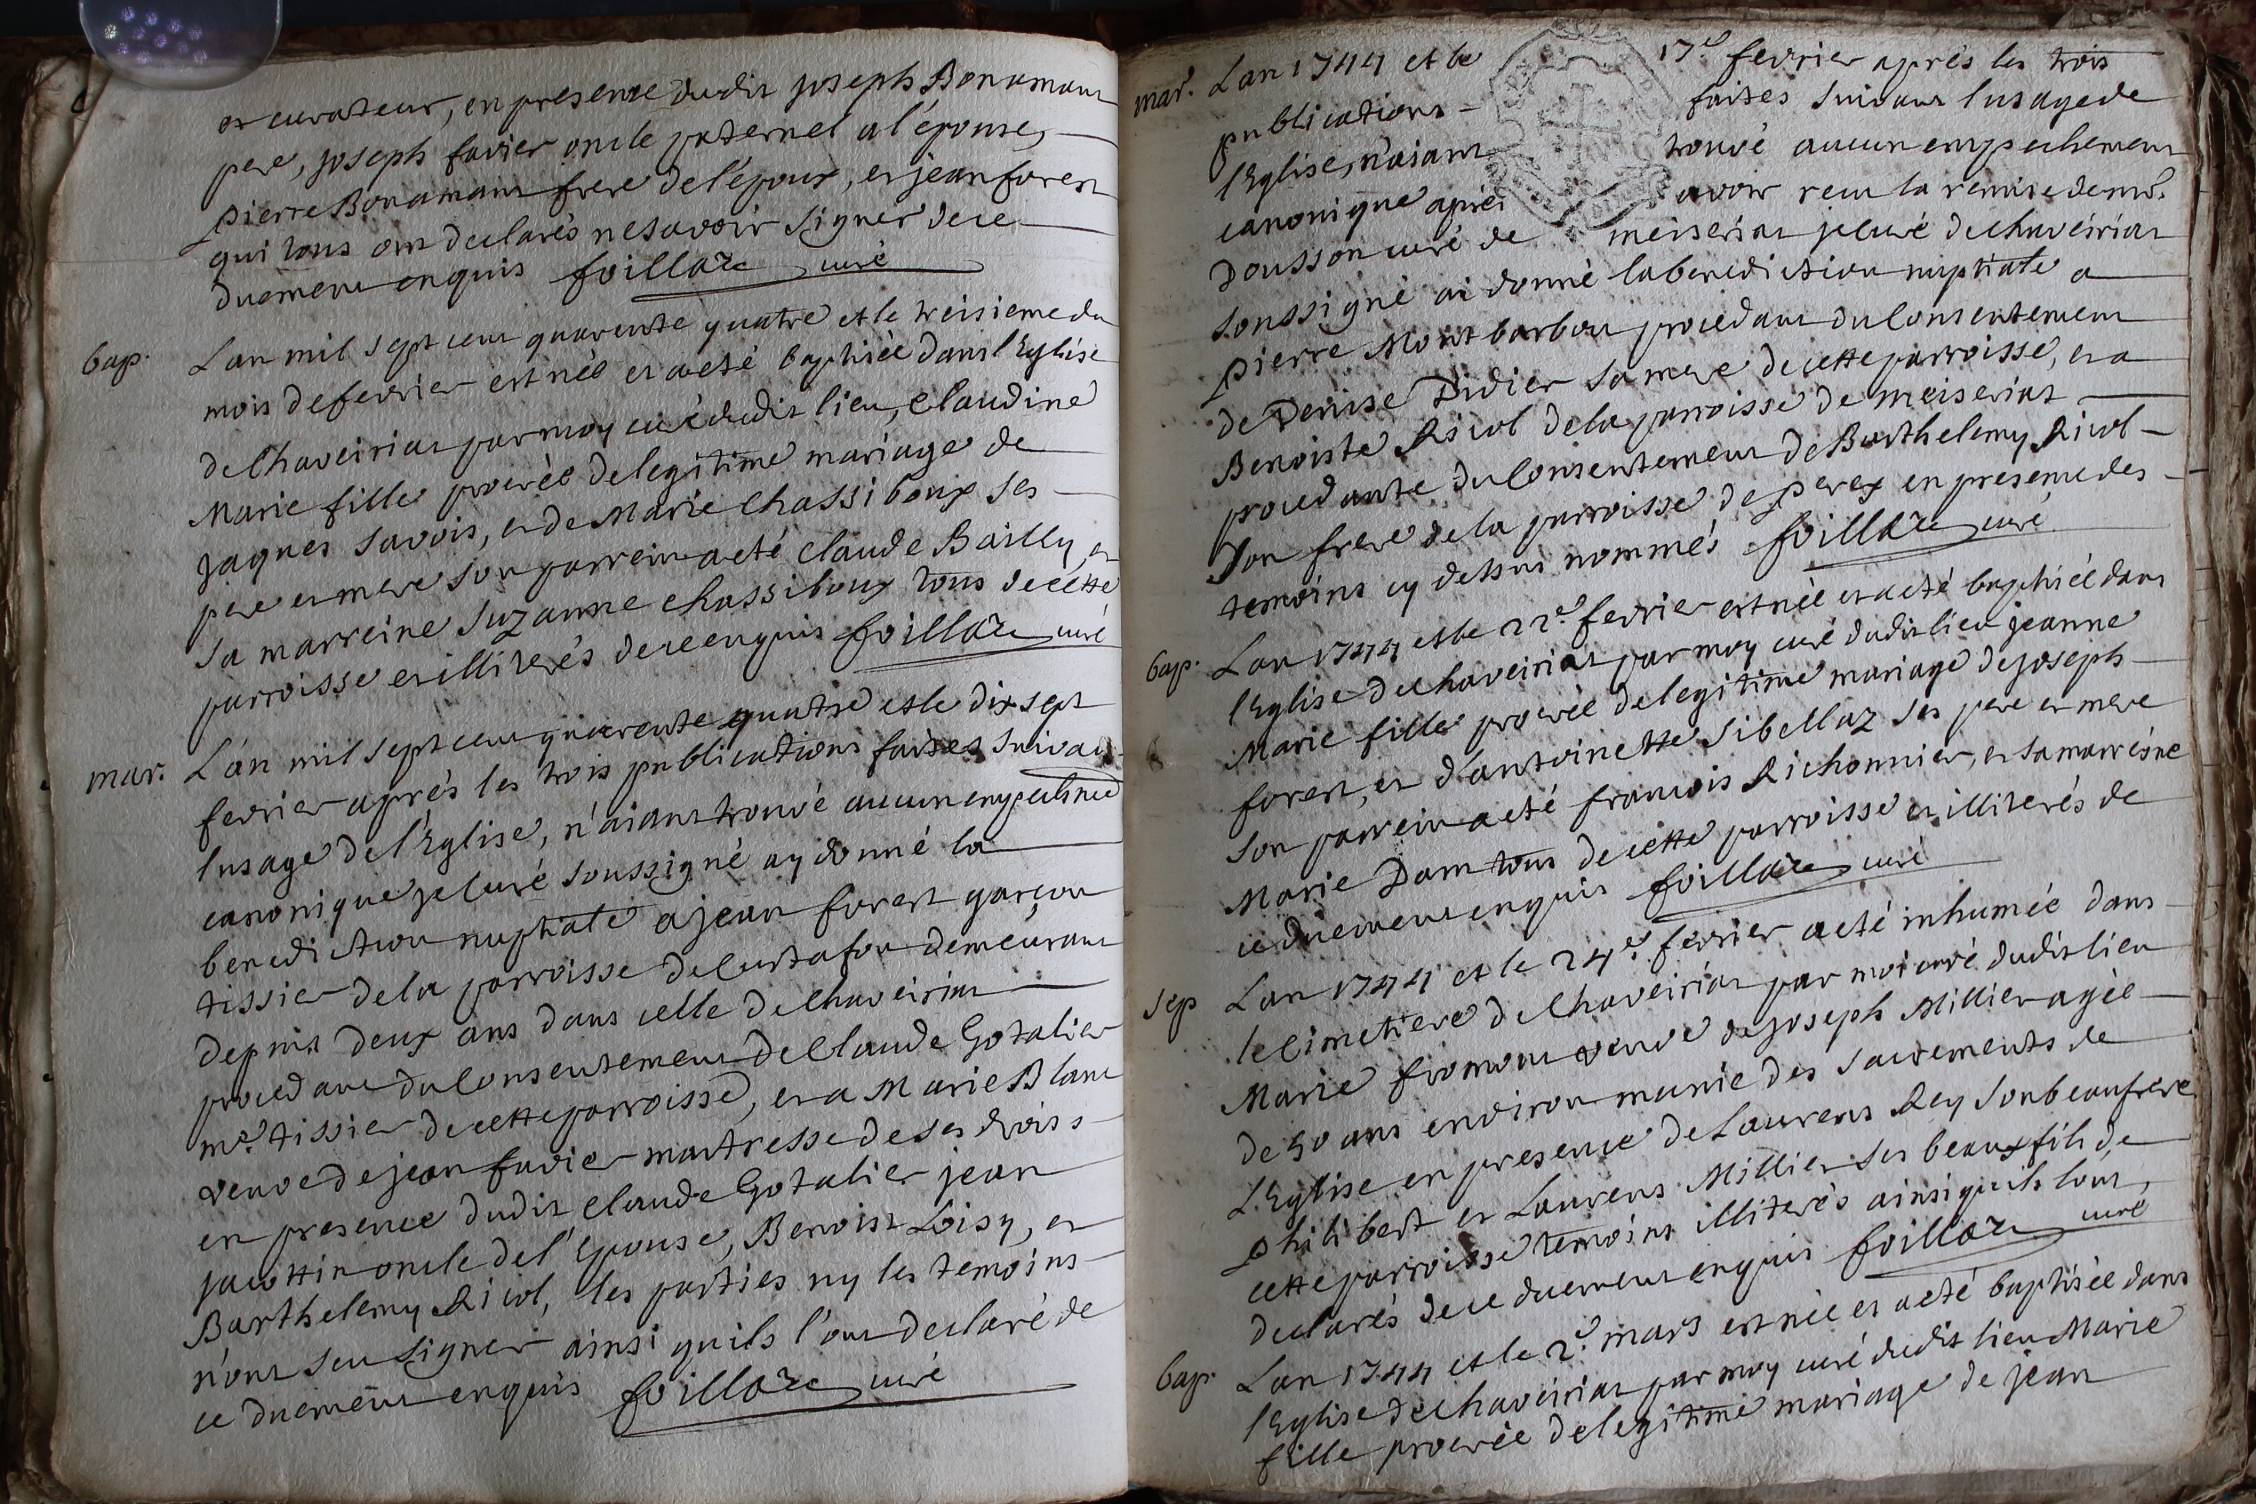 et curateur, en presence dudit joseph Bonamant
pere, joseph favier oncle paternel a l'épouse,
pierre Bonamant frere de l'époux, et jean forest
qui tous ont declarés ne savoir signer de ce
duement enquis foillaz curé
bap. Lan mil sept cent quarente quatre et le treisieme du
mois de fevrier est née et a eté baptisée dans l'Eglise
de Chaveiriat par moy curé dudit lieu, Claudine
Marie fille procréé de legitime mariage de
jaques Savois, et de Marie Chassiboux ses
pere et mere son parrein a eté Claude Bailly, et
sa marreine Suzanne chassiboux tous de cette
parroisse et illiterés de ce enquis foillaz curé
mar. L'an mil sept cent quarente quatre et le dix sept
fevrier aprés les trois publications faites suivant
lusage de l'Eglise, n'aiant trouvé aucun empechmt
canonique je curé soussigné ay donné la
benediction nuptiale a jean forest garçon
tissier de la parroisse de Curtafon demeurant
depuis deux ans dans celle de Chaveiriat
procedant du Consentement de Claude Gotalier
me. tissier de cette parroisse, et a Marie Blanc
veuve de jean favier maitresse de ses droits
en presence dudit Claude Gotalier jean
jacottin oncle de l'Epouse, Benoist Loisy, et
Barthelemy Ricol, les parties ny les temoins
n'ont seu signer ainsi quils l'ont declaré de
ce duement enquis foillaz curé
mar. Lan 1744 et le 17e fevrier aprés les trois
publications faites suivant lusage de
l'Eglise, n'aiant trouvé aucun empechement
canonique aprés avoir receu la remise de mr.
Dousson curé de meiseriat je curé de chaveiriat
soussigné ai donné la benediction nuptiale a
pierre Montbarbon procedant du Consentement
de Denise Didier sa mere de cette parroisse, et a
Benoiste Ricol de la parroisse de meiseriat
procedante du Consentement de Barthelemy Ricol
son frere de la parroisse de perex en presence des
temoins cy dessus nommés foillaz curé
bap. Lan 1744 et le 22e fevrier est née et a eté baptisée dans
l'Eglise de chaveiriat par moy curé dudit lieu jeanne
Marie fille procréé de legitime mariage de joseph
forest, et d'antoinette Sibellaz ses pere et mere
son parrein a eté francois Richonnier, et sa marreine
Marie Dam tous de cette parroisse et illiterés de
ce duement enquis foillaz curé
sep Lan 1744 et le 24e fevrier a eté inhumée dans
le Cimetiere de Chaveiriat par moi curé dudit lieu
Marie fromont veuve de joseph Millier agée
de 50 ans environ munie des sacrements de
L'Eglise en presence de Laurens Rey son beaufrere
philibert et Laurens Millier ses beaux fils de
cette parroisse temoins illiterés ainsi quils l'ont
declarés de ce duement enquis foillaz curé
bap. Lan 1744 et le 2e mars est née et a eté baptisée dans
l'Eglise de chaveiriat par moy curé dudit lieu Marie
fille procréé de legitime mariage de jean